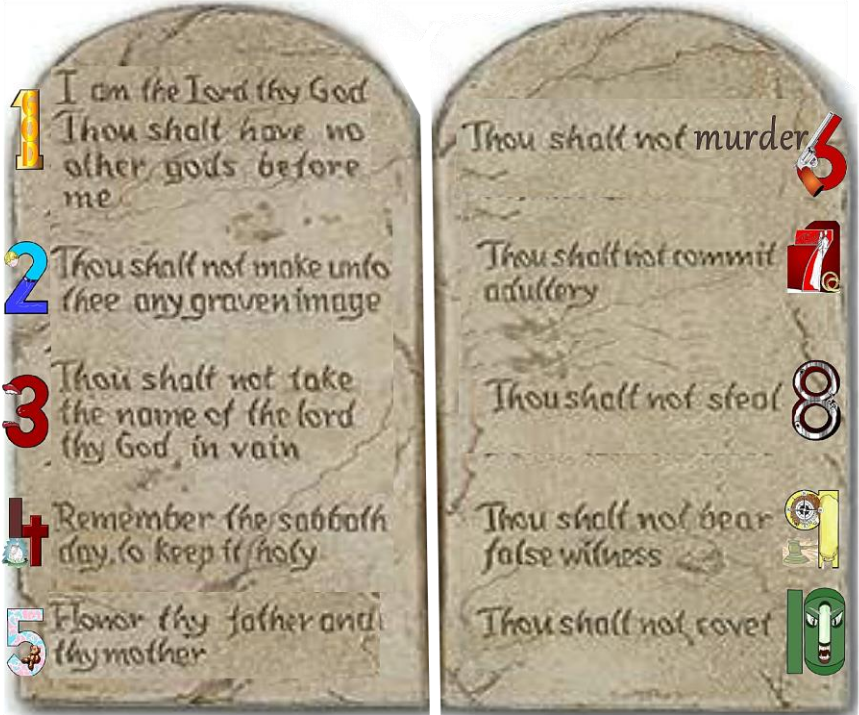 1
I am the Lord thy God
Thou shalt have no
other gods before
me
2
Thou shalt not make unto
thee any graven image
3
Thou shalt not take
the name of the lord
thy God in vain
4
Remember the sabbath
day, to keep it holy
5
Honor thy father and
thy mother
Thou shalt not murder 6
Thou shalt not commit
adultery
7
Thou shalt not steal 8
Thou shalt not bear
false witness
9
Thou shalt not covet 10